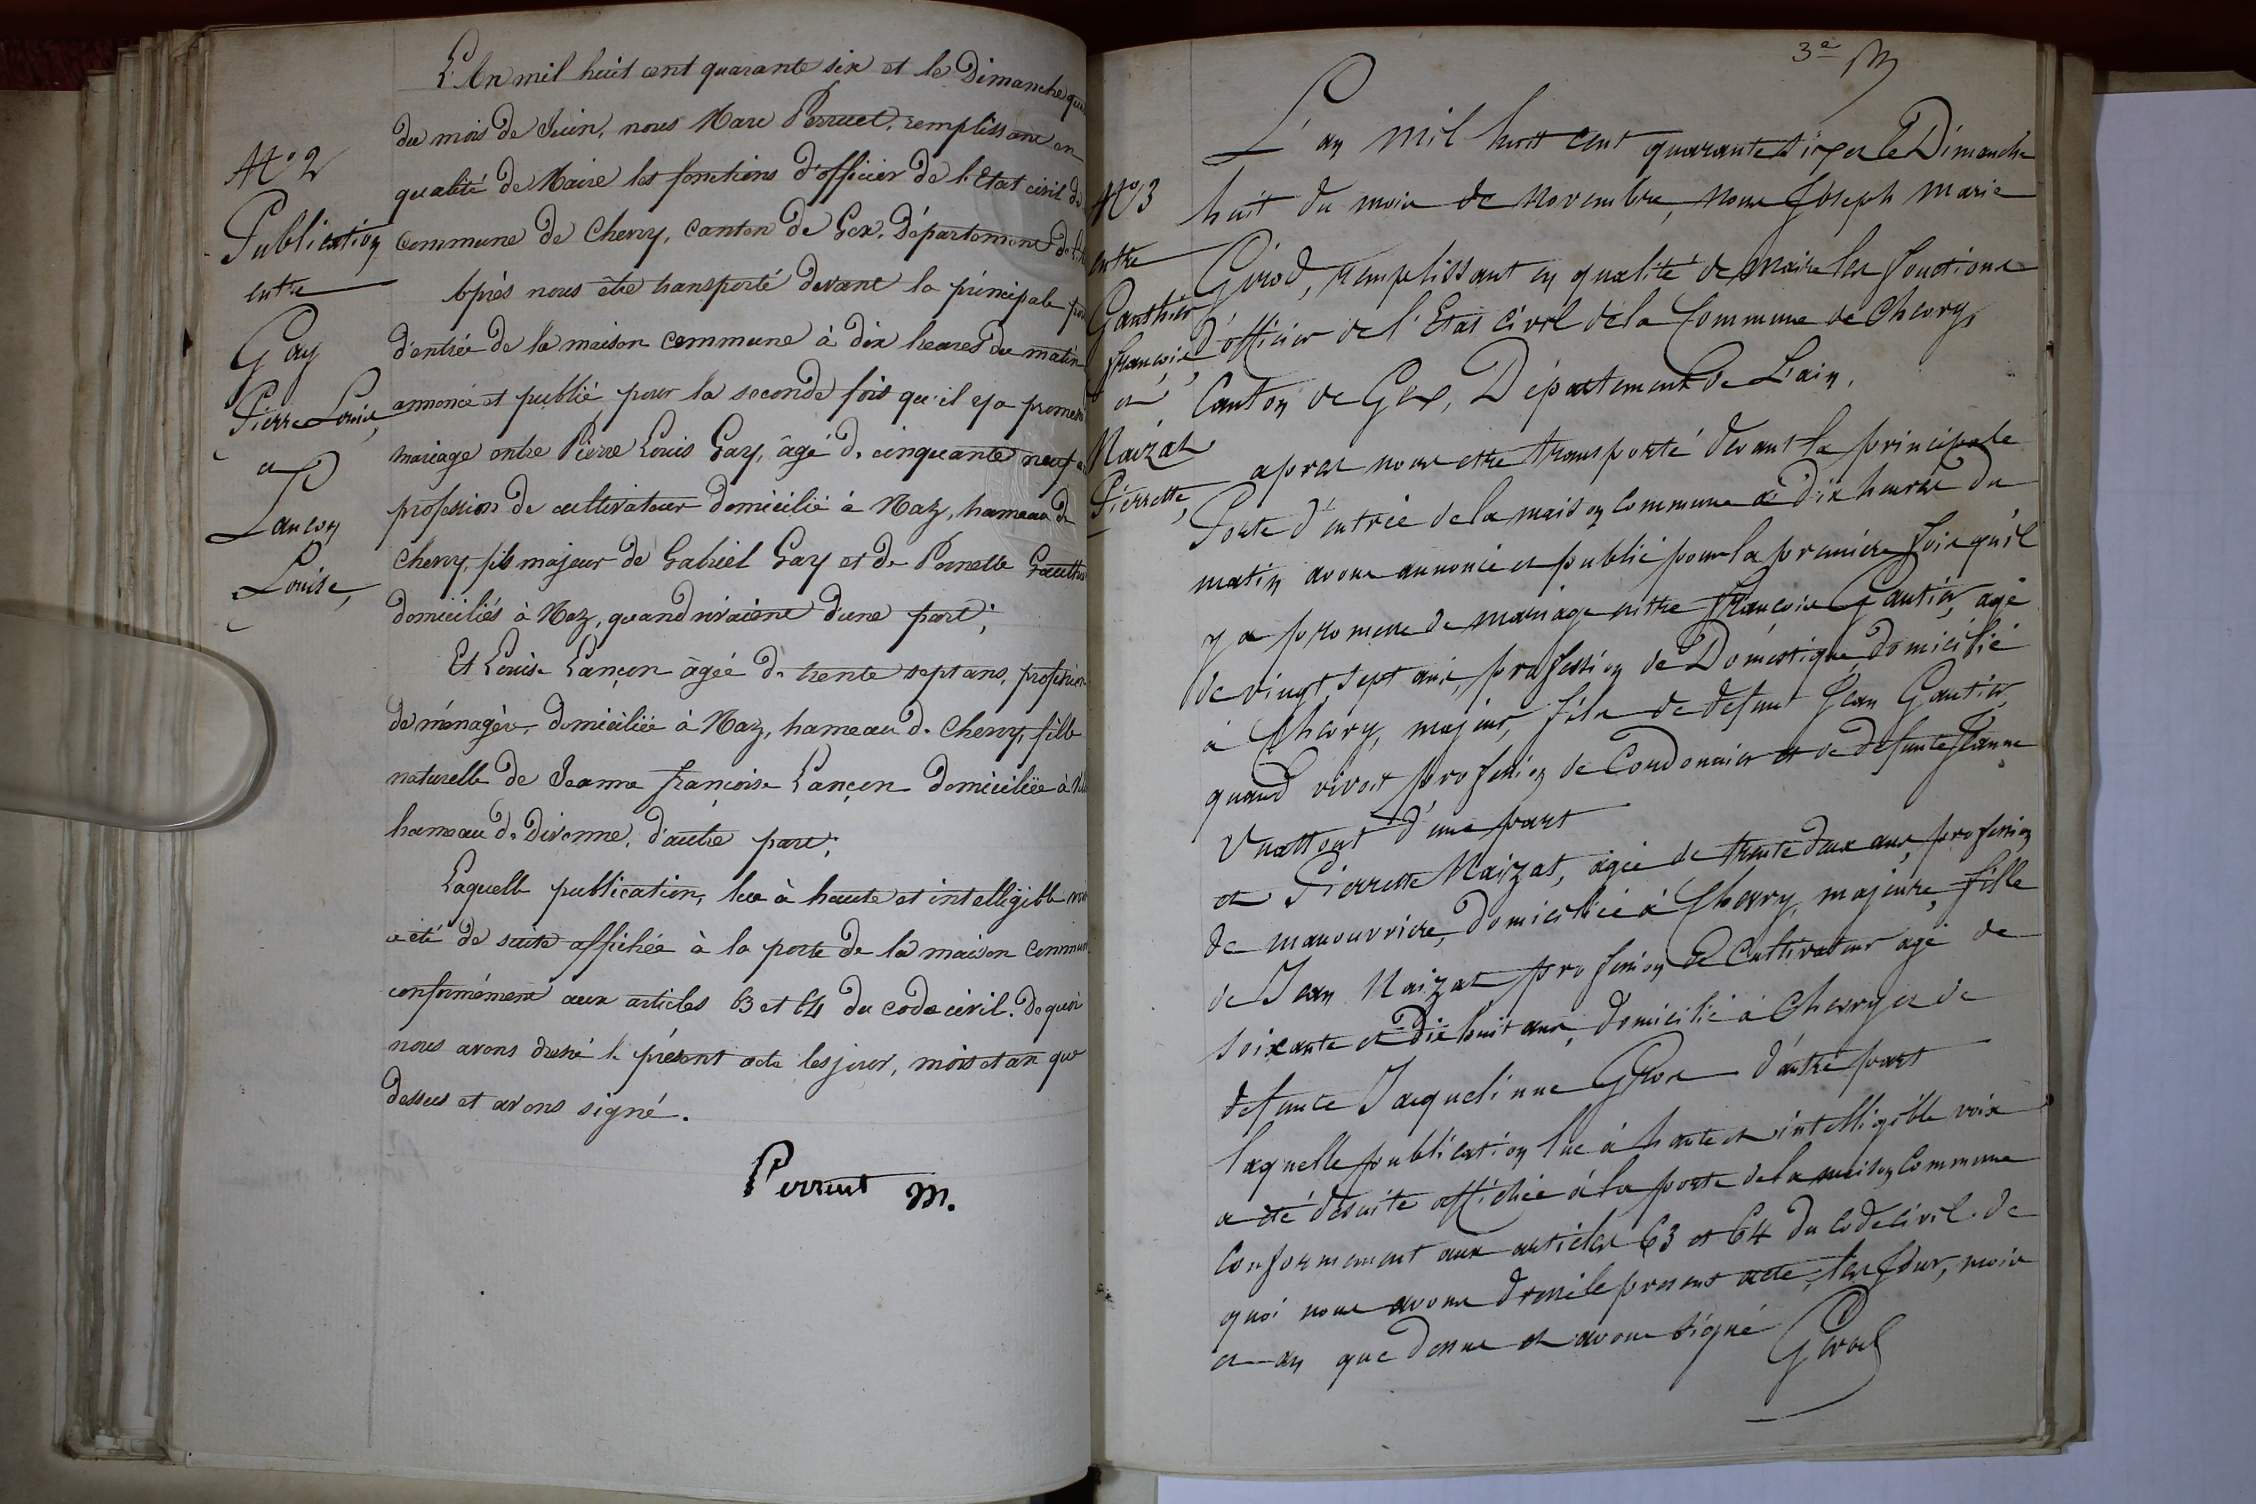 N° 2
Publication
entre
Gay
Pierre Louis,
et
Lançon
Louise,
L'An mil huit cent quarante six et le Dimanche
du mois de Juin, nous Marc Perruet, remplissant en
qualité de Maire les fonctions d'officier de l'Etat civil de
Commune de Chevry, canton de Gex, Département de l'
Après nous être transporté devant la principale
d'entrée de la maison commune à dix heures du matin
annoncé et publié pour la seconde fois qu'il y a promesse
mariage entre Pierre Louis Gay, âgé de cinquante neuf
profession de cultivateur domicilié à Naz, hameau de
Chevry, fils majeur de Gabriel Gay et de Pernette Gauthier
domiciliés à Naz, quand vivaient d'une part;
Et Louise Lançon âgée de trente sept ans, profession
de ménagère domiciliée à Naz, hameau de Chevry, fille
naturelle de Jeanne françoise Lançon domiciliée à
hameau de Divonne, d'autre part;
Laquelle publication, lue à haute et intelligible voix
a été de suite affichée à la porte de la maison commune
conformément aux articles 63 et 64 du code civil. De quoi
nous avons dressé le présent acte les jour, mois et an que
dessus et avons signé.
Perruet m.
3e M
N° 3
entre
Gauthier
françois,
et
Maizat
Pierrette,
L'an mil huit cent quarante six et le Dimanche
huit du mois de Novembre, nous Joseph Marie
Girod, remplissant en qualité de Maire les fonctions
d'officier de l'Etat civil de la Commune de Chevry,
Canton de Gex, Département de L'ain,
après nous etre transporté devant la principale
Porte d'entrée de la maison commune à dix heures du
matin avons annoncé et publié pour la première fois qu'il
y a promesse de mariage entre françois Gautier, agé
de vingt sept ans, profession de Domestique domicilié
à Chevry, majeur, fils de defunt Jean Gautier,
quand vivoit profession de Cordonnier et de defunte Jeanne
Vuattout d'une part
et Pierrette Maizat, agée de trente deux ans, profession
de manouvrière, domiciliée à Chevry, majeure, fille
de Jean Maizat profession de Cultivateur agé de
soixante et dix huit ans, domicilié à Chevry et de
defunte Jacquelinne Gros d'autre part
laquelle publication lue à haute et intelligible voix
a été desuite affichée à la porte de la maison Commune
Conformement aux articles 63 et 64 du Code Civil. de
quoi nous avons dressé le present acte, les Jour, mois
et an que dessus et avons signé
Girod